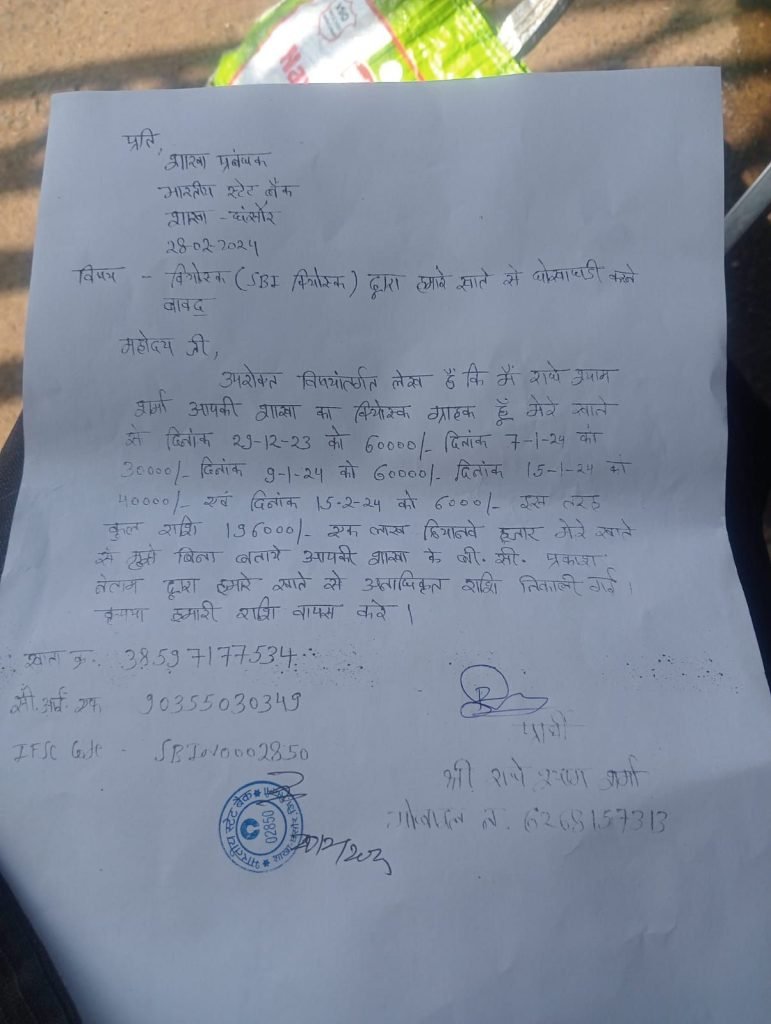 Na
प्रति,
शाखा प्रबंधक
भारतीय स्टेट बैंक
शाखा - घंसौर
28-02-2024
विषय - कियोस्क (SBI कियोस्क) द्वारा हमारे खाते से धोखाधडी करने
बावद
महोदय जी,
उपरोक्त विषयांतर्गत लेख हैं कि मैं राधे श्याम
शर्मा आपकी शाखा का कियोस्क ग्राहक हूँ मेरे खाते
से दिनांक 29-12-23 को 60000/- दिनांक 7-1-24 को
30000/- दिनांक 9-1-24 को 60000/- दिनांक 15-1-24 को
40000/- एवं दिनांक 15-2-24 को 6000/- इस तरह
कुल राशि 196000/- एक लाख छियानवे हजार मेरे खाते
से मुझे बिना बताये आपकी शाखा के बी. सी. प्रकाश
द्वारा हमारे खाते से अनाधिकृत राशि निकाली गई।
कृपया हमारी राशि वापस करे।
खाता क्र. 38597177534
सी. आई. एफ 90355030349
IFSC Code - SBIN0002850
प्रार्थी
श्री राधे श्याम शर्मा
मोबाइल न. 6268157313
भारतीय स्टेट बैंक
02850